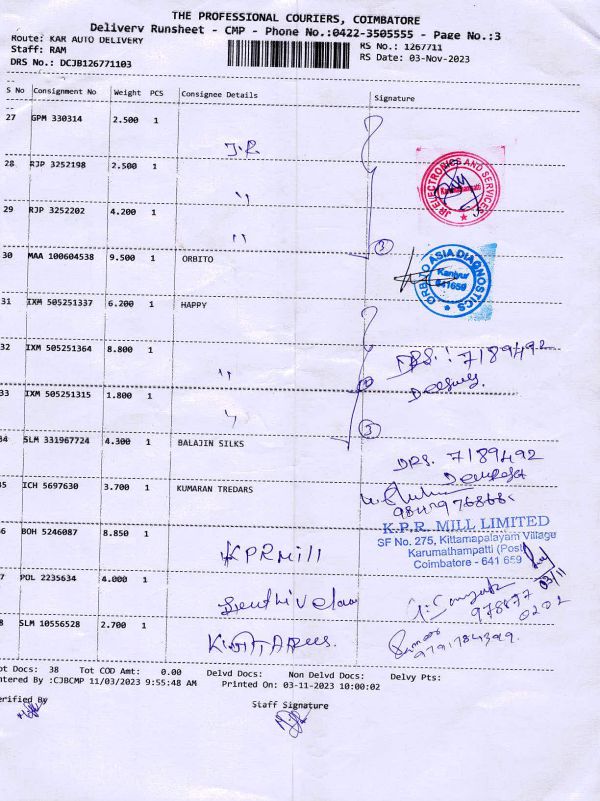 THE PROFESSIONAL COURIERS, COIMBATORE
Delivery Runsheet - CMP - Phone No.:0422-3505555 - Page No.:3
Route: KAR AUTO DELIVERY
Staff: RAM
RS No.: 1267711
DRS No.: DCJB126771103
RS Date: 03-Nov-2023
S No Consignment No Weight PCS Consignee Details Signature
27 GPM 330314 2.500 1
J.R
28 RJP 3252198 2.500 1
"
JR ELECTRONICS AND SERVICES
29 RJP 3252202 4.200 1
"
3
30 MAA 100604538 9.500 1 ORBITO
ORBITO ASIA DIAGNOSTICS
Kaniyur
641659
31 IXM 505251337 6.200 1 HAPPY
32 IXM 505251364 8.800 1
"
DRS. : 7189492
33 IXM 505251315 1.800 1
"
3
34 SLM 331967724 4.300 1 BALAJIN SILKS
DRS. 7189492
35 ICH 5697630 3.700 1 KUMARAN TREDARS
36 BOH 5246087 8.850 1
KPR Mill
K.P.R. MILL LIMITED
SF No. 275, Kittampalayam Village
Karumathampatti (Post)
Coimbatore - 641 659
03/11
37 POL 2235634 4.000 1
Senthivelan
978877
0202
38 SLM 10556528 2.700 1
Tot Docs: 38 Tot COD Amt: 0.00 Delvd Docs: Non Delvd Docs: Delvy Pts:
Entered By :CJBCMP 11/03/2023 9:55:48 AM Printed On: 03-11-2023 10:00:02
Verified By
Staff Signature